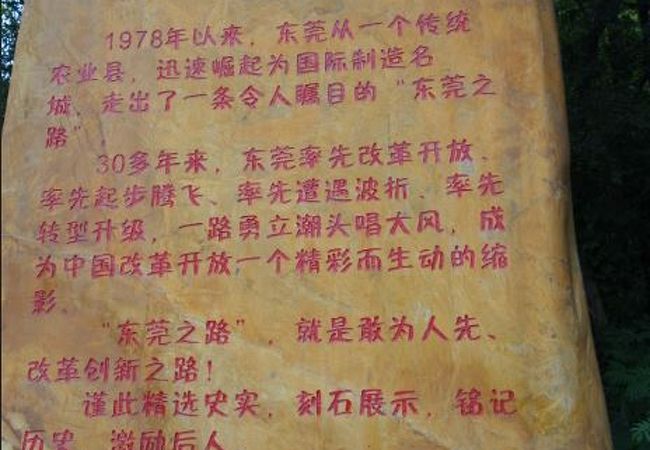 1978年以来，东莞从一个传统
农业县，迅速崛起为国际制造名
城，走出了一条令人瞩目的“东莞之
路”，
30多年来，东莞率先改革开放、
率先起步腾飞、率先遭遇波折、率先
转型升级，一路勇立潮头唱大风，成
为中国改革开放一个精彩而生动的缩
影。
“东莞之路”，就是敢为人先、
改革创新之路！
谨此精选史实，刻石展示，铭记
历史，激励后人